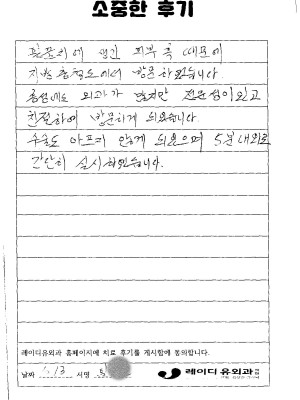 소중한 후기
생긴 피부 혹 때문에
지방 에서 방문 하였습니다.
외과가 많지만 전문성이 있고
친절하여 방문하게 되었습니다.
수술도 아프지 않게 되었으며 5분 내외로
간단히 실시하였습니다.
레이디유외과 홈페이지에 치료 후기를 게시함에 동의합니다.
날짜 1.13 서명
레이디유외과